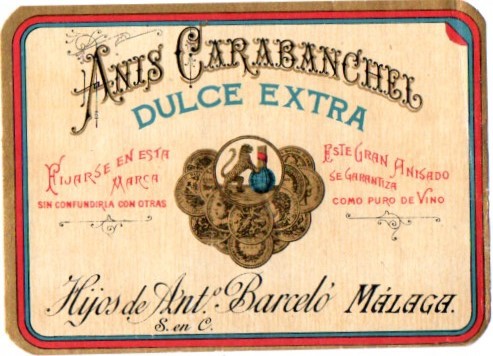 ANIS CARABANCHEL
DULCE EXTRA
FIJARSE EN ESTA
MARCA
SIN CONFUNDIRLA CON OTRAS
ESTE GRAN ANISADO
SE GARANTIZA
COMO PURO DE VINO
Hijos de Antº. Barceló MÁLAGA.
S. en C.